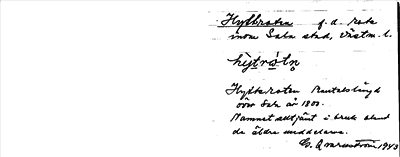 Hyttroten f.d. rote
inom Sala stad, Västm. l.
Hyttaroten Mantalslängd
över Sala år 1800.
Namnet alltjämt i bruk bland
de äldre meddelarna.
G. Qvarnström 1943